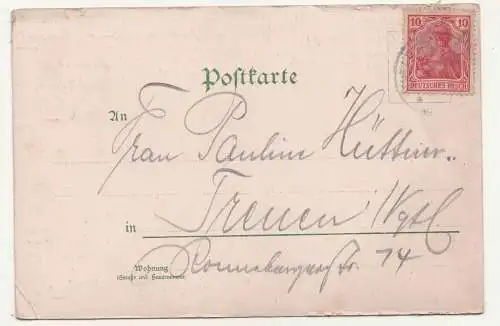 10 10
DEUTSCHES REICH
Postkarte
An Frau Pauline Hüttner.
in Treuen i/Vgtl
Wohnung
(Straße und Hausnummer) 74